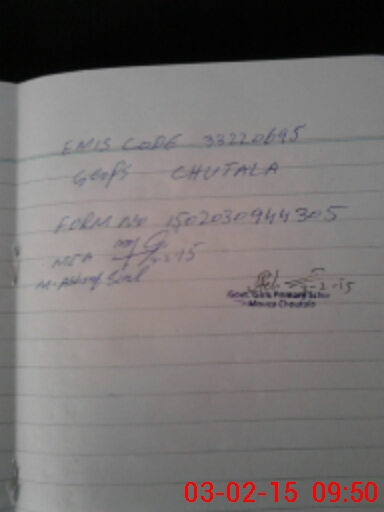 EMIS CODE 33220695
GGPS CHUTALA
FORM NO 1502030944305
MEA
M. Ashraf
Govt. Girls Primary School
Mouza Chautala
03-02-15 09:50